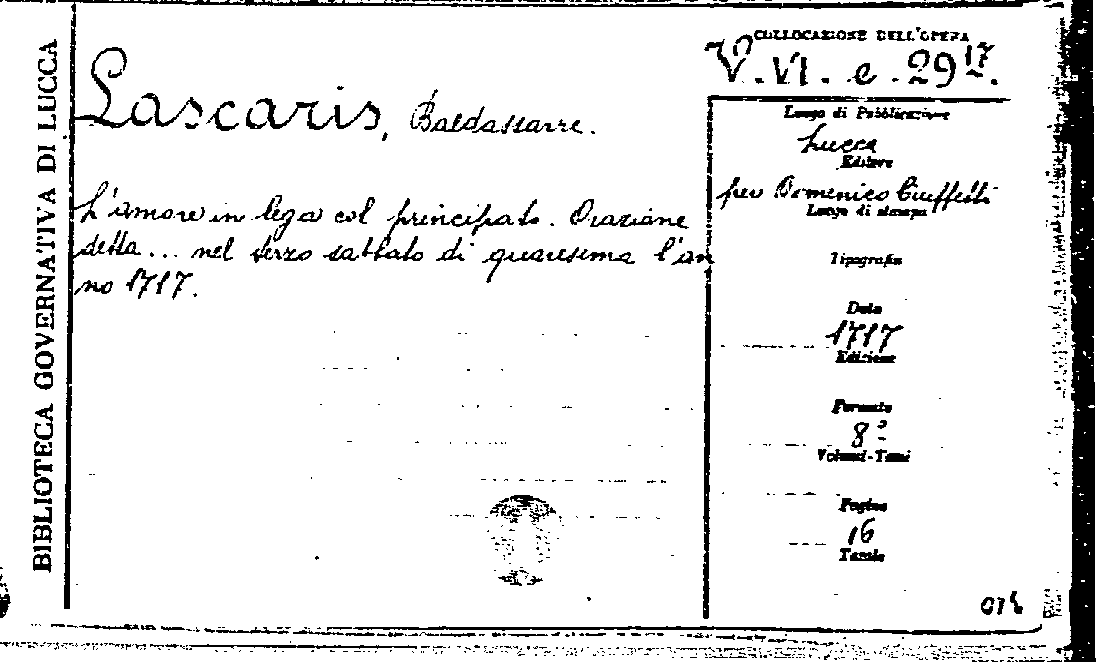 BIBLIOTECA GOVERNATIVA DI LUCCA
Lascaris, Baldassarre.
L'amore in lega col principato. Orazione
detta... nel terzo sabbato di quaresima l'an
no 1717.
COLLOCAZIONE DELL'OPERA
V. VI. e. 29 17.
Luogo di Pubblicazione
Lucca
Editore
per Domenico Ciuffetti
Luogo di stampa
Tipografia
Data
1717
Edizione
Formato
8º
Volumi-Tomi
Pagine
16
Tavole